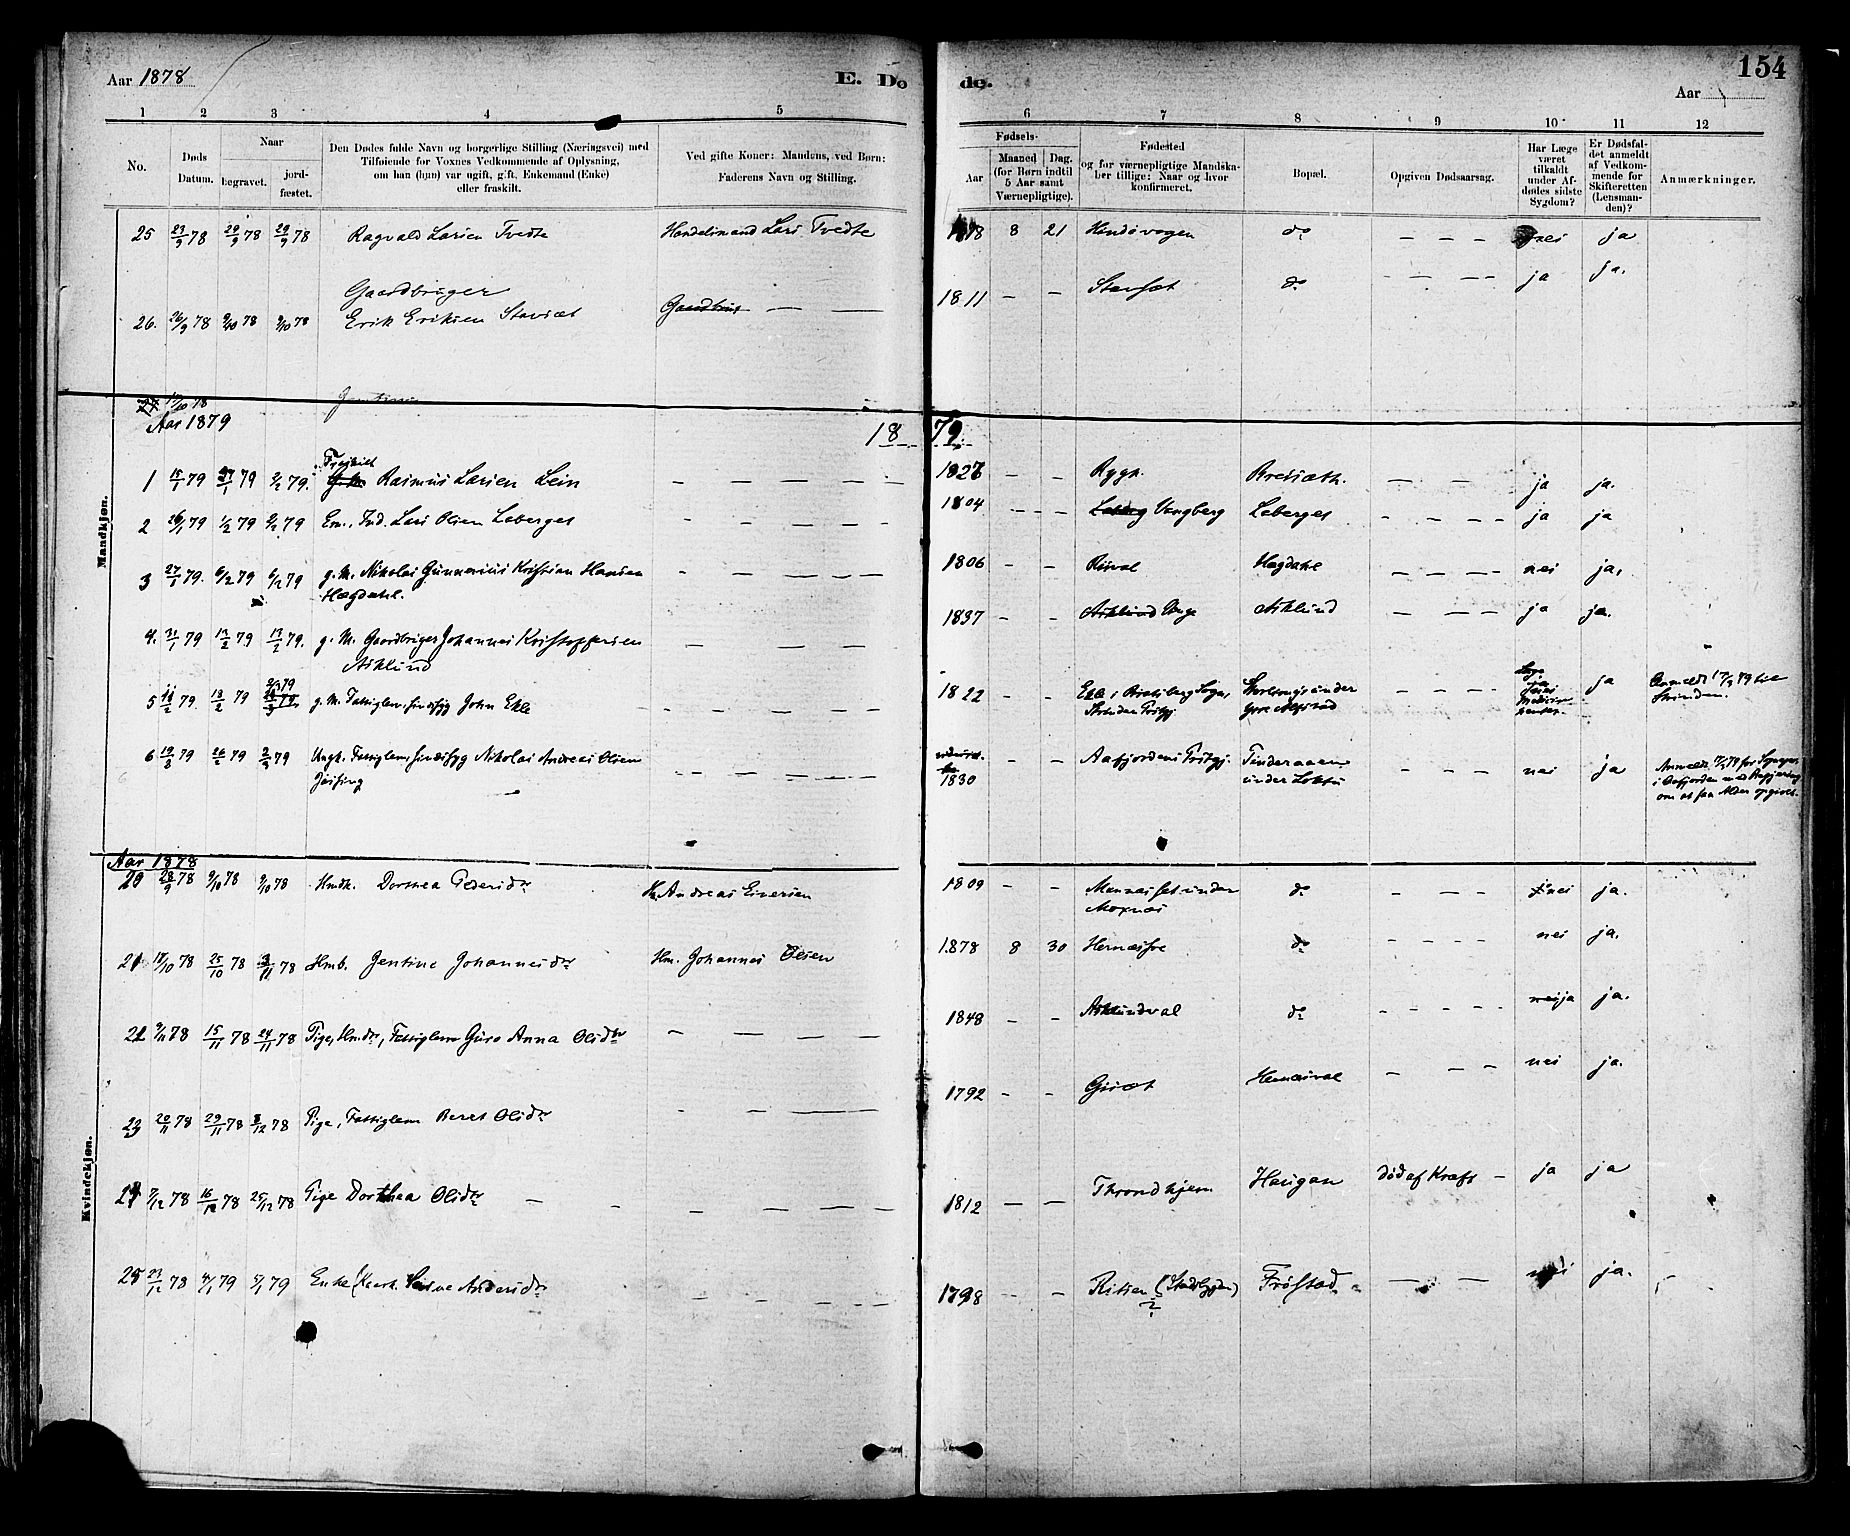 Aar 1878
E. Dø
de.
154
Aar
1 2 3 4 5 6 7 8 9 10 11 12
No.
Døds Datum.
Naar
begravet.
jord-fæstet.
Den Dødes fulde Navn og borgerlige Stilling (Næringsvei) med
Tilføiende for Voxnes Vedkommende af Oplysning,
om han (hun) var ugift, gift, Enkemand (Enke)
eller fraskilt.
Ved gifte Koner: Mandens, ved Børn:
Faderens Navn og Stilling.
Fødsels-
Aar
Maaned Dag.
(for Børn indtil
5 Aar samt
Værnepligtige).
Fødested
og for værnepligtige Mandska-
ber tillige: Naar og hvor
konfirmeret.
Bopæl.
Opgiven Dødsaarsag.
Har Læge
været
tilkaldt
under Af-
dødes sidste
Sygdom?
Er Dødsfal-
det anmeldt
af Vedkom-
mende for
Skifteretten
(Lensman-
den)?
Anmærkninger.
25 23/9 78 29/9 78 29/9 78 Ragvald Larsen Tvedte Handelsmand Lars Tvedte 1878 8 21 do — — — nei ja
Gaardbruger
26. 26/9 78 9/10 78 9/10 78 Erik Eriksen Stavsæt — — 1811 — — Stavsæt do — — — ja ja.
27 17/10 78
Aar 1879
1879
Mandkjøn.
1 15/1 79 79 2/2 79. Rasmus Larsen Lein — — — — 1827 — — Rygg. Bretsæth. — — ja ja.
2 26/1 79 1/2 79 2/2 79 Em., Ind. Lars Olsen Leberget — — — — 1804 Vangberg Leberget — — — ja ja
3 27/1 79. 6/2 79 6/2 79 g. M. Nikolai Gunnerius Kristian Hansen
Hægdahl. — — — 1806 — — Hægdahl — — — nei ja.
4. 31/1 79 13/2 79 13/2 79. g. M. Gaardbruger Johannes Kristoffersen
Asklund — — — 1837 — — Asklund — — — ja ja.
5 11/2 79. 18/2 79 2/3 79 g. M. Fattiglem, sindssyg John Ekle — — — 1822 — — Ekle i Bratsberg Sogn,
Strinden Prstgj. — — — ja
Anmeldt 17/2 79 til
Strinden.
6 19/2 79 26/2 79 2/3 79 Ungk. Fattiglem, sindssyg Nikolai Andreas Olsen — — — 1830 — — Aafjordens Prstgj.
under Loktu — — — nei ja
om at faa Alder opgivet.
Aar 1878
Kvindekjøn.
20 28/9 78 9/10 78 9/10 78 Hmdk. Dorthea Pedersdr Hm Andreas Eversen 1809 — — under
Moxnæs do — — — nei ja.
21 17/10 78 25/10 78 3/11 78 Hmb. Gentine Johannesdr Hm. Johannes Olsen 1878 8 30 do — — — nei ja.
22 9/11 78 15/11 78 24/11 78 Pige, Hmdr, Fattiglem Guro Anna Olsdtr — — — — 1848 — — Asklundval do — — — ja ja.
23 20/11 78 29/11 78 8/12 78 Pige, Fattiglem Beret Olsdr — — — 1792 — — Hernæsval — — — nei ja.
24 7/12 78 16/12 78 25/12 78 Pige Dorthea Olsdtr — — — — 1812 — — Throndhjem Haugan død af Kræft — ja ja
25 23/12 78 4/1 79 5/1 79 Enke Andersdr — — — — 1798 — — Ritsen (Stadsbygden)
? Frøstad — — nei ja.